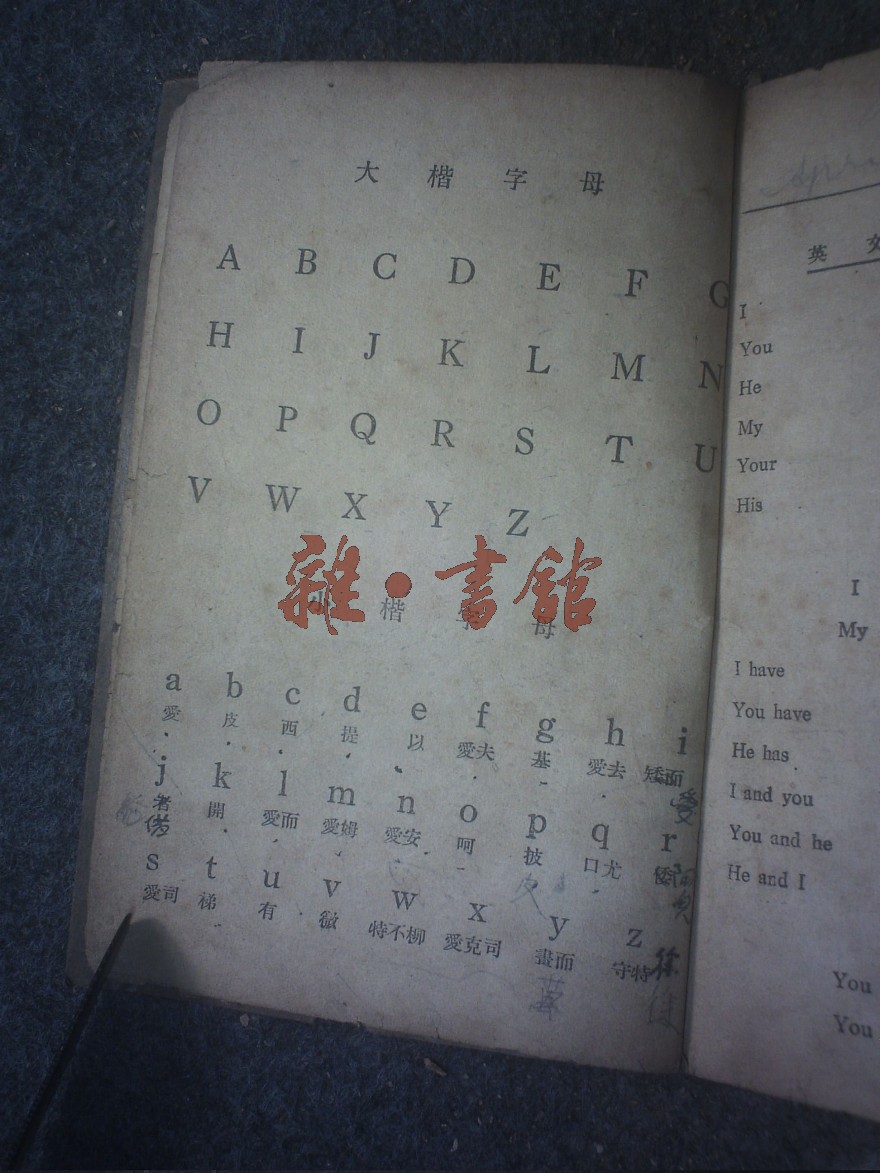 大楷字母
A B C D E F G
H I J K L M N
O P Q R S T U
V W X Y Z
雜·書館
小楷字母
a b c d e f g h i
愛 皮 西 提 以 愛夫 基 愛去 矮而
愛
j k l m n o p q r
者 開 愛而 愛姆 愛安 呵 披 口尤
s t u v w x y z
愛司 梯 有 微 特不柳 愛克司 畫而 守特
徐
英
I
You
He
My
Your
His
I
My
I have
You have
He has
I and you
You and he
He and I
You
You